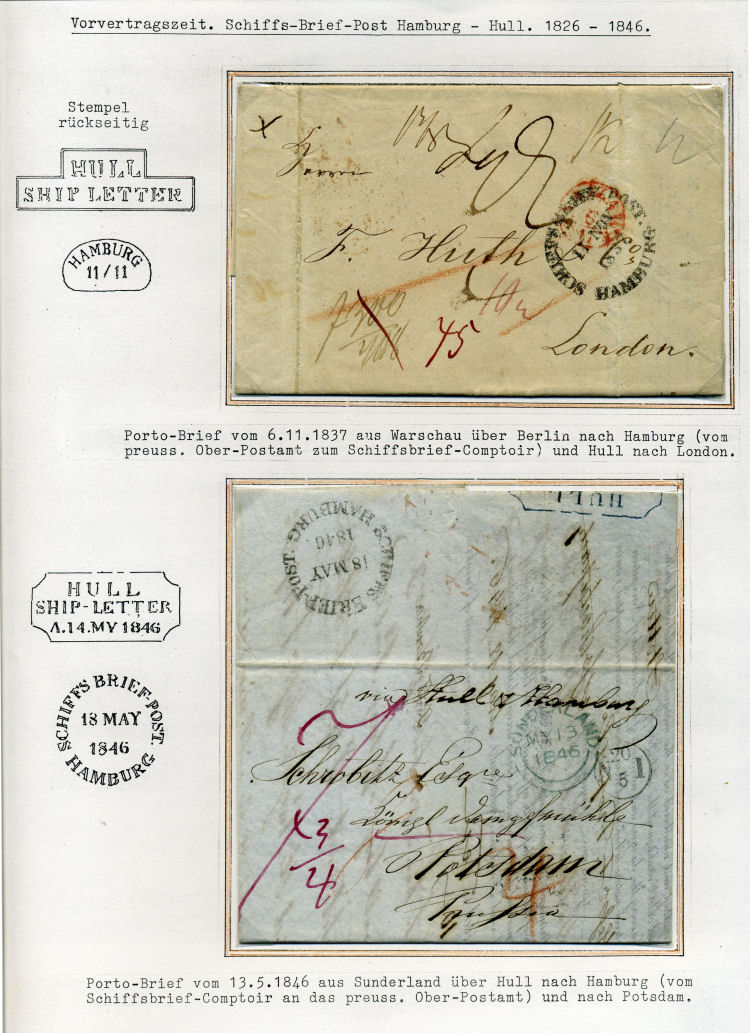 Vorvertragszeit. Schiffs-Brief-Post Hamburg - Hull. 1826 - 1846.
Stempel
rückseitig
HULL
SHIP LETTER
HAMBURG
11/11
SCHIFFS BRIEF-POST.
HAMBURG
F. Huth
10
45
London.
Porto-Brief vom 6.11.1837 aus Warschau über Berlin nach Hamburg (vom
preuss. Ober-Postamt zum Schiffsbrief-Comptoir) und Hull nach London.
HULL
SHIP-LETTER
A.14.MY 1846
SCHIFFS BRIEF-POST.
18 MAY
1846
HAMBURG
HULL
SCHIFFS BRIEF-POST.
18 MAY
1846
HAMBURG
via Hull & Hamburg
SUNDERLAND
MY 13
1846
20
5
1
Schrobitz Esqre
Königl Dampfmühle
3
4
Potsdam
Preussia
Porto-Brief vom 13.5.1846 aus Sunderland über Hull nach Hamburg (vom
Schiffsbrief-Comptoir an das preuss. Ober-Postamt) und nach Potsdam.